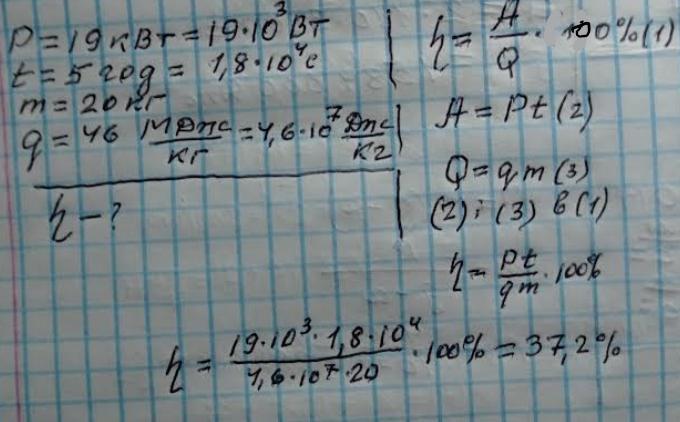 P = 19 кВт = 19·10³ Вт
t = 5 год = 1,8·10⁴ с
m = 20 кг
q = 46 МДж/кг = 4,6·10⁷ Дж/кг
η – ?
η = A/Q · 100% (1)
A = Pt (2)
Q = qm (3)
(2) і (3) в (1)
η = Pt/qm · 100%
η = 19·10³·1,8·10⁴/4,6·10⁷·20 · 100% = 37,2%